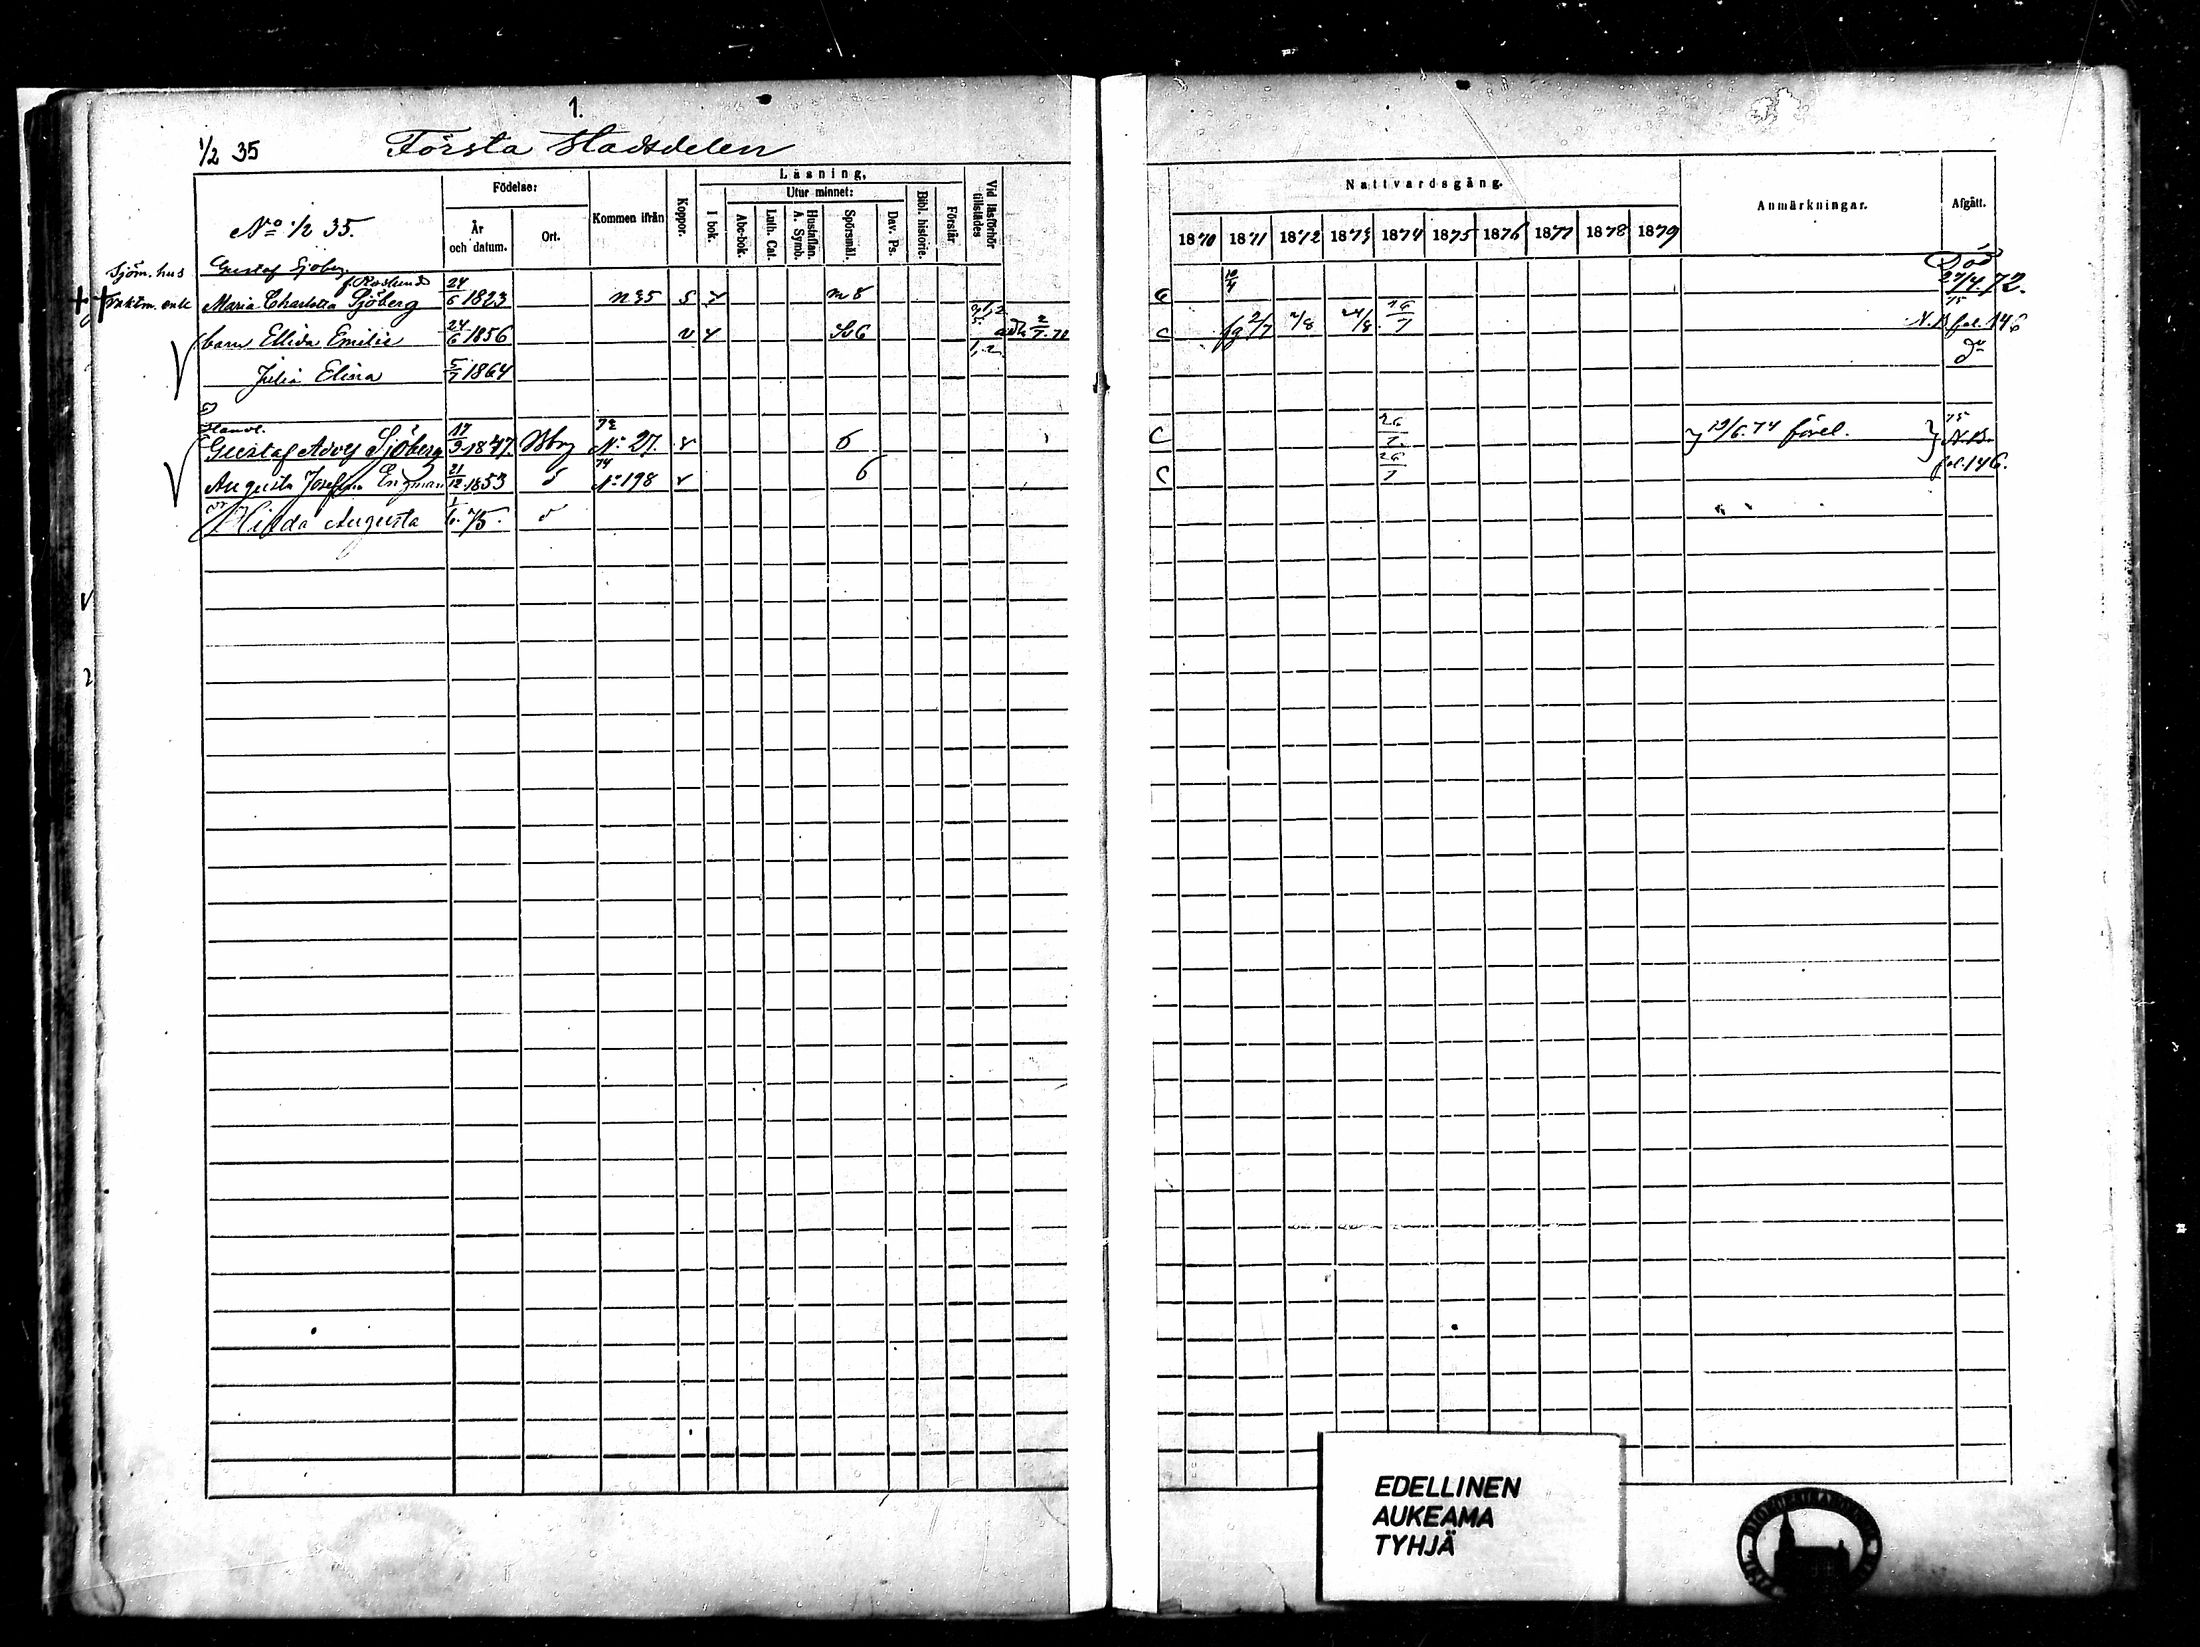 1.
1/2 35 Första Stadsdelen
No 1/2 35.
Födelse:
År och datum.
Ort.
Kommen ifrån
Koppor.
Läsning,
I bok.
Utur minnet:
Abc-bok.
Luth. Cat.
Hustaflan. A. Symb.
Spörsmål.
Dav. Ps.
Bibl. historie.
Förstår
Vid läsförhör tillstädes
Nattvardsgång.
1870 1871 1872 1873 1874 1875 1876 1877 1878 1879
Anmärkningar.
Afgått.
Sjöm. hus Gustaf Sjöberg
f. Roslund Död
enk. Maria Charlotta Sjöberg 24/6 1823 n 35 s y m 8 27/4.72.
barn Ellida Emilie 24/6 1856 v y 6 2/7 2/8 24/8 26/7 N.B. fol. 146
Julia Elina 5/7 1864 do
Gustaf Adolf Sjöberg 17/9 1847. 72 No 27. v 6 C 26/7 19/6.74 75 N.B.
Augusta Josefina Engman 21/12 1853 74 No 198 v 6 C 26/7 fol. 146.
Hilda Augusta 75.
EDELLINEN
AUKEAMA
TYHJÄ